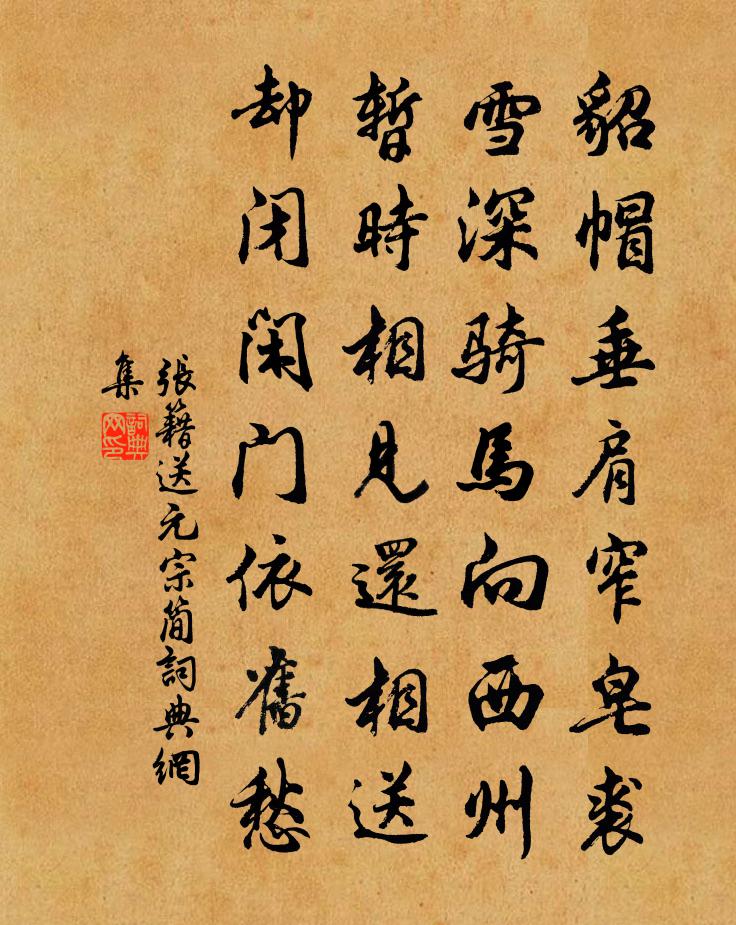 貂帽垂肩窄皂裘
雪深骑馬向西州
暫時相見還相送
却闭闲门依舊愁
張籍送元宗简詞典網
集
詞典
网印